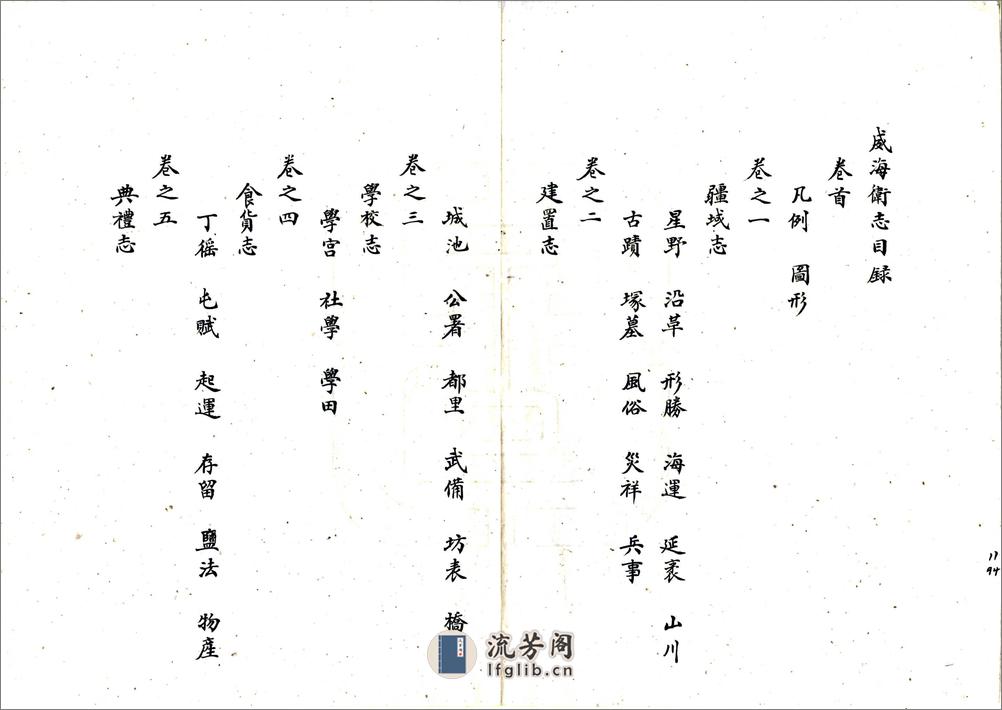 威海衛志目録
卷首
凡例 圖形
卷之一
疆域志
星野 沿革 形勝 海運 延袤 山川
古蹟 塚墓 風俗 災祥 兵事
卷之二
建置志
城池 公署 都里 武備 坊表 橋
卷之三
學校志
學宮 社學 學田
卷之四
食貨志
丁徭 屯賦 起運 存留 鹽法 物產
卷之五
典禮志
流芳阁
lfglib.cn